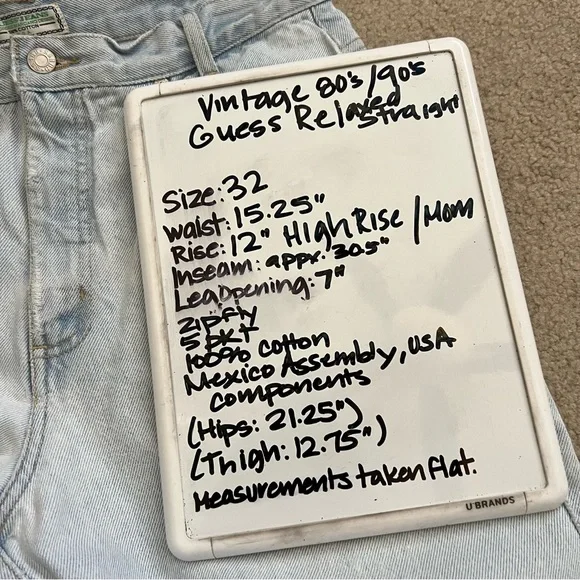 JEANS
Vintage 80's/90's
Guess Relaxed
Straight
Size: 32
Waist: 15.25"
Rise: 12" High Rise / Mom
Inseam: appx. 30.5"
Leg Opening: 7"
zip fly
5 pkt
100% cotton
Mexico Assembly, USA
components
(Hips: 21.25")
(Thigh: 12.75")
Measurements taken flat.
U BRANDS